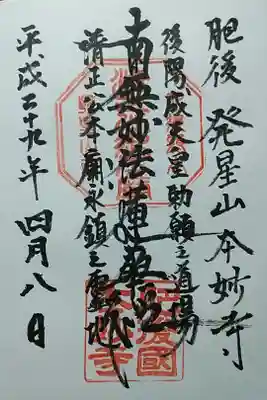 肥後 発星山 本妙寺
後陽成天皇勅願之道場
南無妙法蓮華経
清正公本廟永鎮之霊地
平成二十九年 四月八日